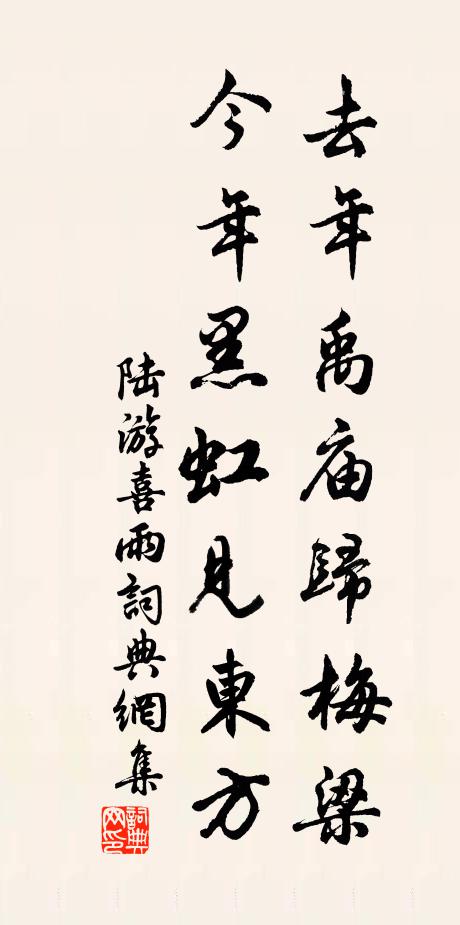 去年禹庙歸梅梁
今年黑虹見東方
陆游喜雨詞典網集
詞典网印